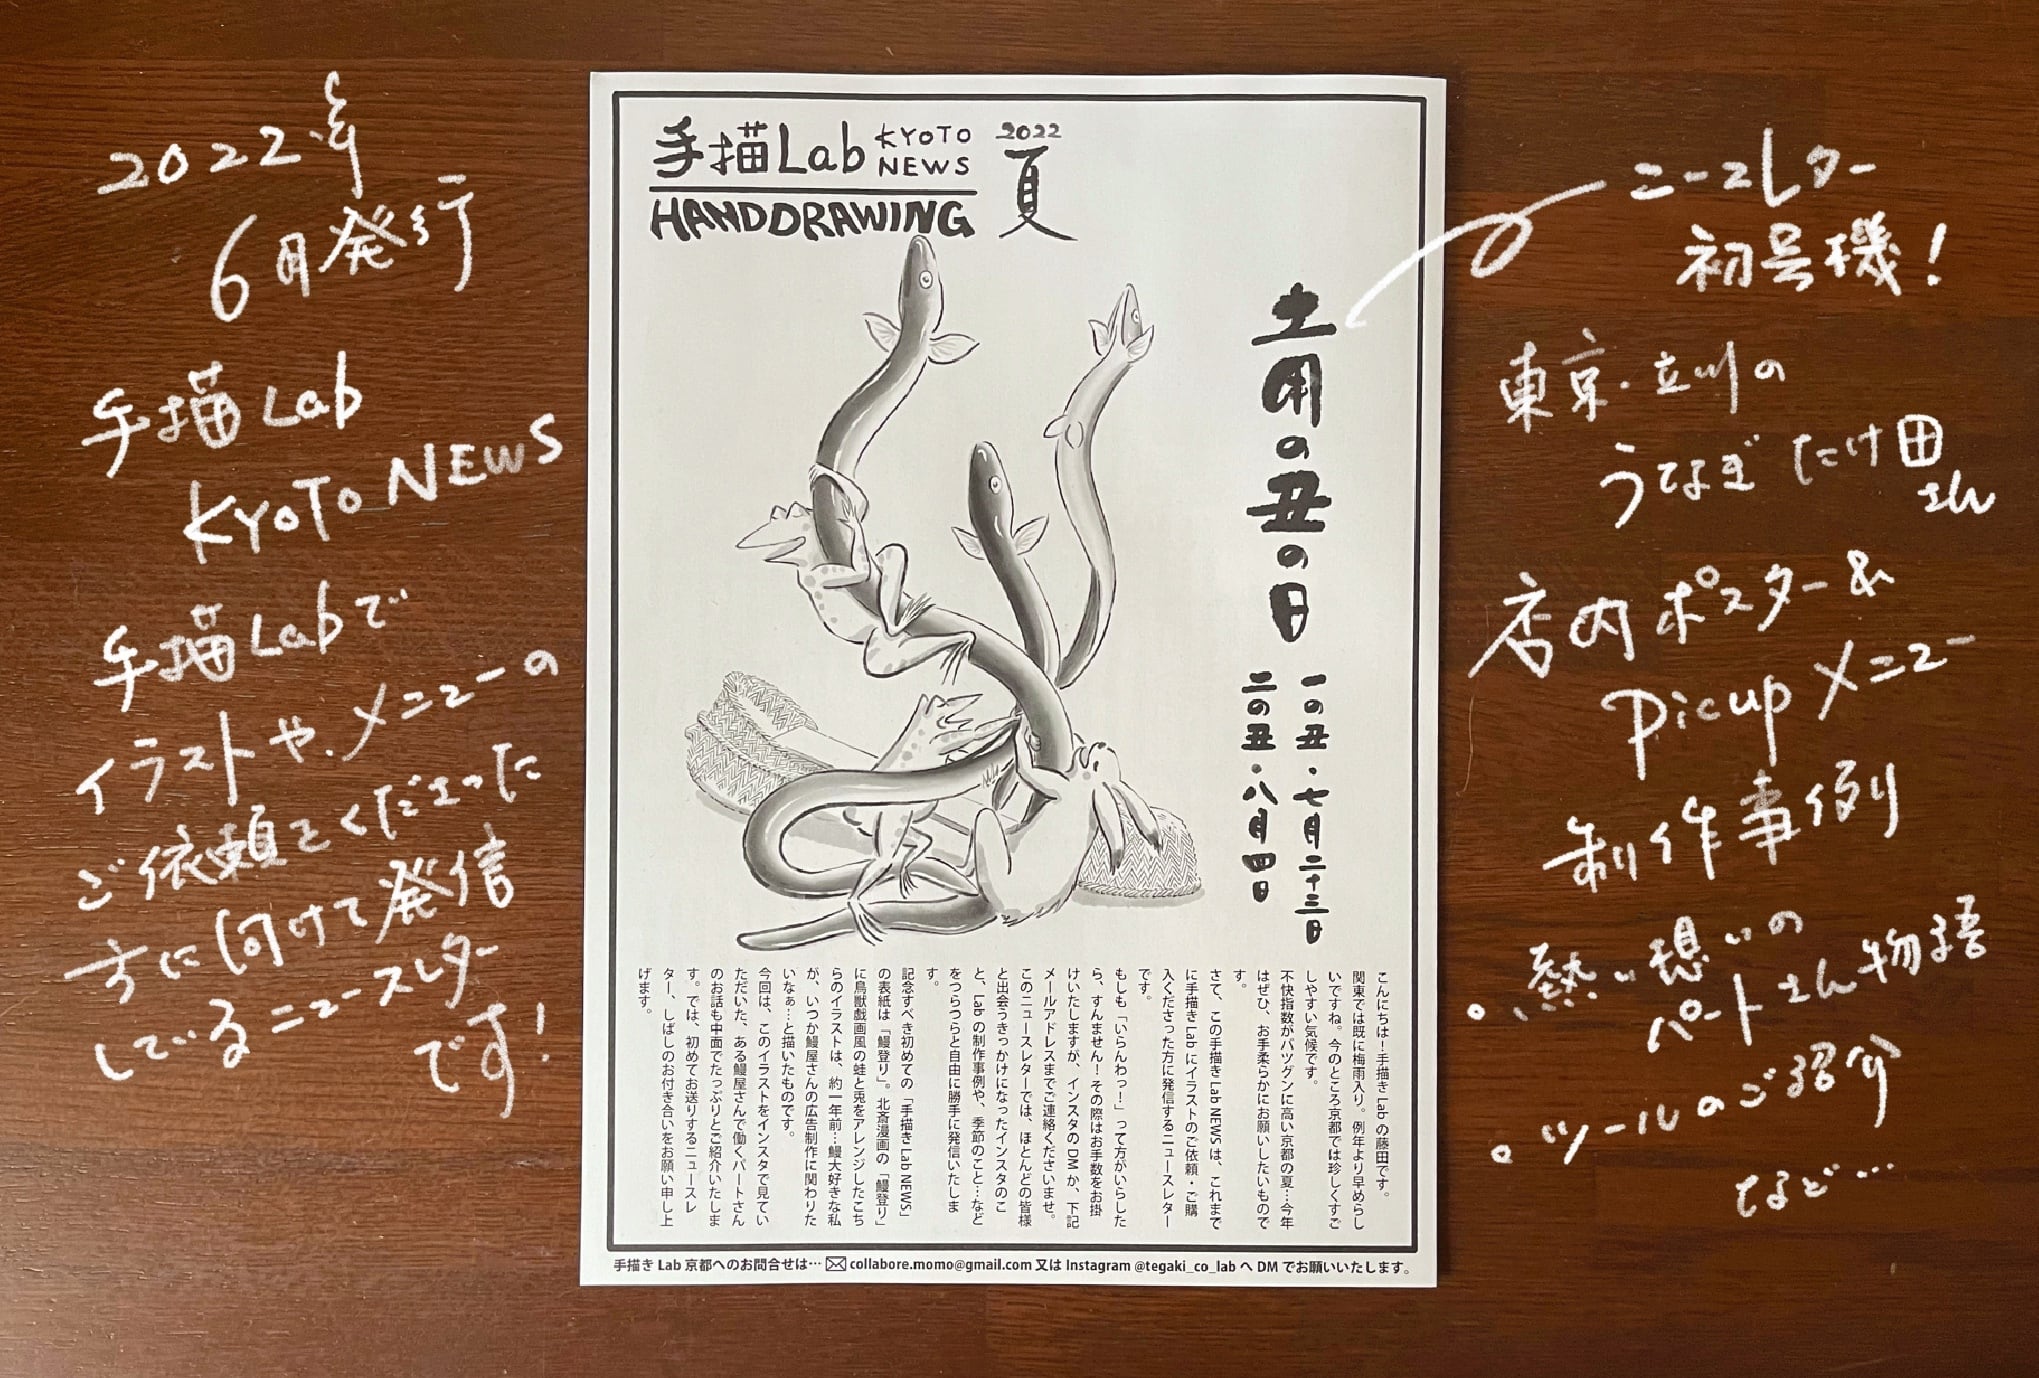 2022年
6月発行
手描Lab
KYOTO NEWS
手描Labで
イラストや、メニューの
ご依頼をくださった
方に向けて発信
しているニュースレター
です!
手描Lab KYOTO NEWS
HANDDRAWING
2022
夏
土用の丑の日
一の丑・七月二十三日
二の丑・八月四日
こんにちは!手描きLabの藤田です。
関東では既に梅雨入り。例年より早めらし
いですね。今のところ京都では珍しくすご
しやすい気候です。
不快指数がバツグンに高い京都の夏…今年
はぜひ、お手柔らかにお願いしたいもので
す。
さて、この手描きLab NEWSは、これまで
に手描きLabにイラストのご依頼・ご購
入くださった方に発信するニュースレター
です。
もしも「いらんわっ!」って方がいらした
ら、すんません!その際はお手数をお掛
けいたしますが、インスタのDMか、下記
メールアドレスまでご連絡くださいませ。
このニュースレターでは、ほとんどの皆様
と出会うきっかけになったインスタのこ
と、Labの制作事例や、季節のこと…など
をつらつらと自由に勝手に発信いたしま
す。
記念すべき初めての「手描きLab NEWS」
の表紙は「鰻登り」。北斎漫画の「鰻登り」
に鳥獣戯画風の蛙と兎をアレンジしたこち
らのイラストは、約一年前…鰻大好きな私
が、いつか鰻屋さんの広告制作に関わりた
いなぁ…と描いたものです。
今回は、このイラストをインスタで見てい
ただいた、ある鰻屋さんで働くパートさん
のお話も中面でたっぷりとご紹介いたしま
す。では、初めてお送りするニュースレ
ター、しばしのお付き合いをお願い申し上
げます。
手描き Lab 京都へのお問合せは… collabore.momo@gmail.com 又は Instagram @tegaki_co_lab へ DM でお願いいたします。
ニースレター
初号機!
東京・立川の
うなぎ たけ田
さん
店内ポスター&
Picup メニュー
制作事例
・熱い想いの
パートさん物語
・ツールのご紹介
など…